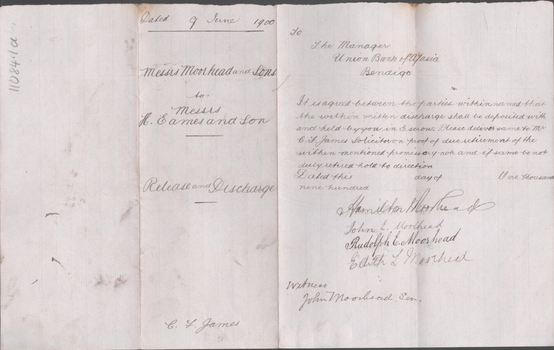 11084.1a
Dated 9 June 1900
Messrs Moorhead and Sons
to
Messrs
H. Eames and Son
Release and Discharge
C. S. James
To
The Manager
Union Bank of
Bendigo
It is agreed between the parties within named that
the within written discharge shall be deposited with
and held by you in Escrow. Please deliver same to Mr
C. S. James Solicitor on proof of due retirement of the
within mentioned promissory note and if same be not
duly retired hold to direction
Dated this day of One thousand
nine hundred
Hamilton Moorhead
John E. Moorhead
Rudolph C. Moorhead
Edith L Moorhead
Witness
John Moorhead, Sen.